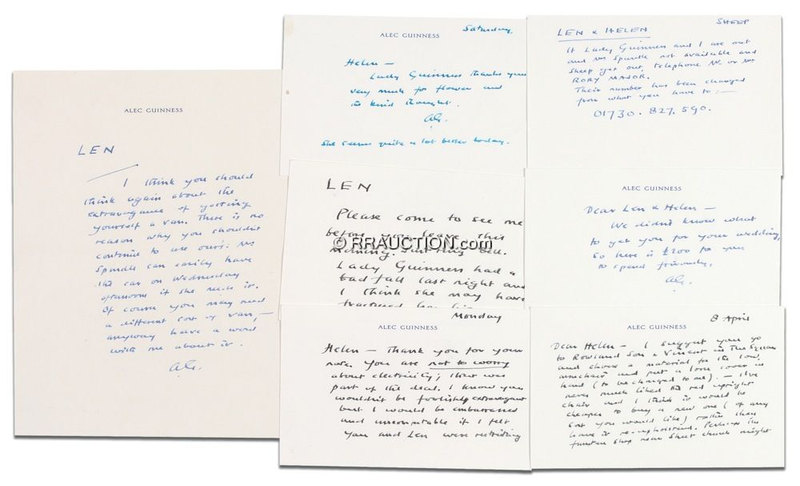 ALEC GUINNESS
LEN
I think you should
think again about the
extravagance of getting
yourself a van. There is no
reason why you shouldn't
continue to use ours. Mrs
Spankle can easily have
the car on Wednesday
afternoon if she needs it.
Of course you may need
a different sort of van, —
anyway have a word
with me about it.
A.G.
Saturday.
ALEC GUINNESS
Helen —
Lady Guinness thanks you
very much for flower and
kind thought.
A.G.
She seems quite a lot better today.
SHEEP
LEN & HELEN
If Lady Guinness and I are out
and Mrs Spankle not available and
sheep get out, telephone Mr. or Mrs
RORY MAJOR.
Their number has been changed
from what you have to : —
01730. 827. 590.
LEN
Please come to see me
before you leave this
morning.
Lady Guinness had a
bad fall last night and
I think she may have
fractured her
ALEC GUINNESS
Dear Len & Helen —
We didn't know what
to get you for your wedding,
so here is £200 for you
to spend
A.G.
Monday
ALEC GUINNESS
Helen — Thank you for your
note. You are not to worry
about electricity; that was
part of the deal. I know you
wouldn't be foolishly extravagant
but I would be embarrassed
and uncomfortable if I felt
you and Len were restricting
8 April
ALEC GUINNESS
Dear Helen — I suggest you go
to Rowland Son & Vincent in The Square
and choose a material for the
armchair and put a loose cover in
hand (to be charged to me). — I've
never much liked the red upright
chair and I think it would be
cheaper to buy a new one (of any
sort you would like) rather than
have it re-upholstered. Perhaps the
furniture shop near Sheet church might
© RRAUCTION.com